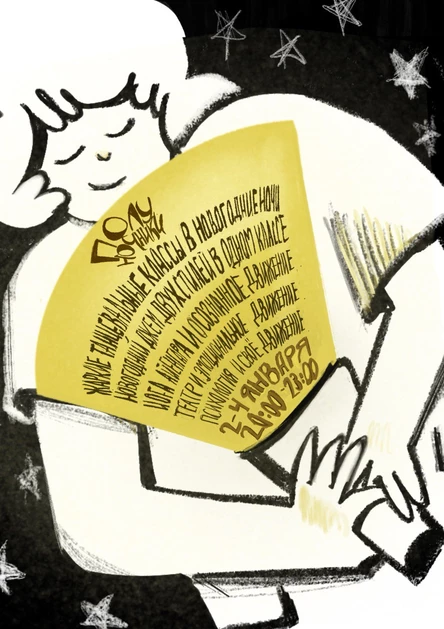 Полу
ночники
ЖАРКИЕ ТАНЦЕВАЛЬНЫЕ КЛАССЫ В НОВОГОДНИЕ НОЧИ
НОВОГОДНИЙ ДУЕТ: ДВУХ СТИЛЕЙ В ОДНОМ КЛАССЕ
ЙОГА И ОСОЗНАННОЕ ДВИЖЕНИЕ
ТЕАТР И ЭМОЦИОНАЛЬНОЕ ДВИЖЕНИЕ
ПСИХОЛОГИЯ И СВОЁ ДВИЖЕНИЕ
2-4 ЯНВАРЯ
20:00-23:00